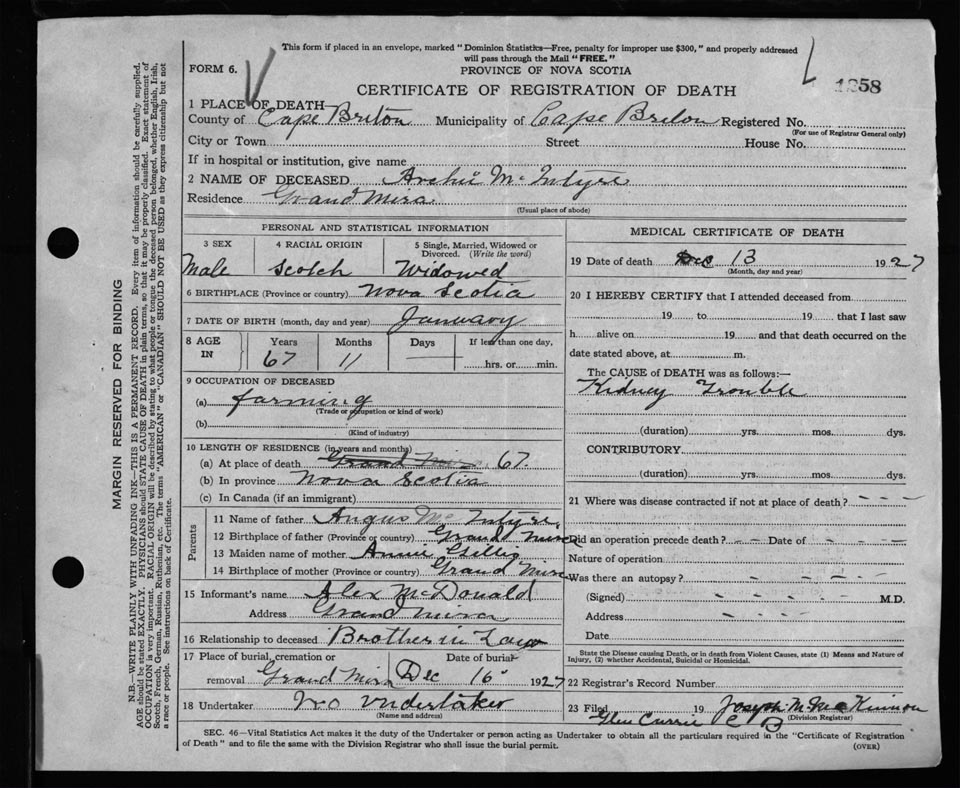 This form if placed in an envelope, marked "Dominion Statistics—Free, penalty for improper use $300," and properly addressed
will pass through the Mail "FREE."
FORM 6.
PROVINCE OF NOVA SCOTIA
CERTIFICATE OF REGISTRATION OF DEATH
1258
1 PLACE OF DEATH
County of Cape Briton Municipality of Cape Breton Registered No.
(For use of Registrar General only)
City or Town Street House No.
If in hospital or institution, give name
2 NAME OF DECEASED Archie McIntyre
Residence Grand Mira
(Usual place of abode)
PERSONAL AND STATISTICAL INFORMATION
3 SEX 4 RACIAL ORIGIN 5 Single, Married, Widowed or
Divorced. (Write the word)
Male Scotch Widowed
6 BIRTHPLACE (Province or country) Nova Scotia
7 DATE OF BIRTH (month, day and year) January
8 AGE IN Years Months Days If less than one day,
67 11 — hrs. or min.
9 OCCUPATION OF DECEASED
(a) farming
(Trade or occupation or kind of work)
(b)
(Kind of industry)
10 LENGTH OF RESIDENCE (in years and months)
(a) At place of death Grand Mira 67.
(b) In province Nova Scotia
(c) In Canada (if an immigrant)
Parents
11 Name of father Angus McIntyre
12 Birthplace of father (Province or country) Grand Mira
13 Maiden name of mother Annie Gillis
14 Birthplace of mother (Province or country) Grand Mira
15 Informant's name Alex McDonald
Address Grand Mira
16 Relationship to deceased Brother in Law
17 Place of burial, cremation or Date of burial
removal Grand Mira Dec 16 1927
18 Undertaker No undertaker
(Name and address)
MEDICAL CERTIFICATE OF DEATH
19 Date of death Dec 13 1927
(Month, day and year)
20 I HEREBY CERTIFY that I attended deceased from
19 to 19 that I last saw
h alive on 19 and that death occurred on the
date stated above, at m.
The CAUSE of DEATH was as follows:—
Kidney Trouble
(duration) yrs. mos. dys.
CONTRIBUTORY
(duration) yrs. mos. dys.
21 Where was disease contracted if not at place of death? - - -
Did an operation precede death? - - Date of - - -
Nature of operation
Was there an autopsy? - - - -
(Signed) - - - - M.D.
Address - - - -
Date
State the Disease causing Death, or in death from Violent Causes, state (1) Means and Nature of
Injury, (2) whether Accidental, Suicidal or Homicidal.
22 Registrar's Record Number
23 Filed 19 Joseph M McKinnon
(Division Registrar)
Glen Currie C B
SEC. 46—Vital Statistics Act makes it the duty of the Undertaker or person acting as Undertaker to obtain all the particulars required in the "Certificate of Registration
of Death" and to file the same with the Division Registrar who shall issue the burial permit.
(OVER)
MARGIN RESERVED FOR BINDING
N.B.—WRITE PLAINLY, WITH UNFADING INK—THIS IS A PERMANENT RECORD. Every item of information should be carefully supplied.
AGE should be stated EXACTLY. PHYSICIANS should STATE CAUSE OF DEATH in plain terms, so that it may be properly classified. Exact statement of
OCCUPATION is very important. RACIAL ORIGIN will be described by stating to what people or tongue the deceased person belonged, whether English, Irish,
Scotch, French, German, Russian, Ruthenian, etc. The terms "AMERICAN" or "CANADIAN" SHOULD NOT BE USED as they express citizenship but not
a race or people. See instructions on back of Certificate.